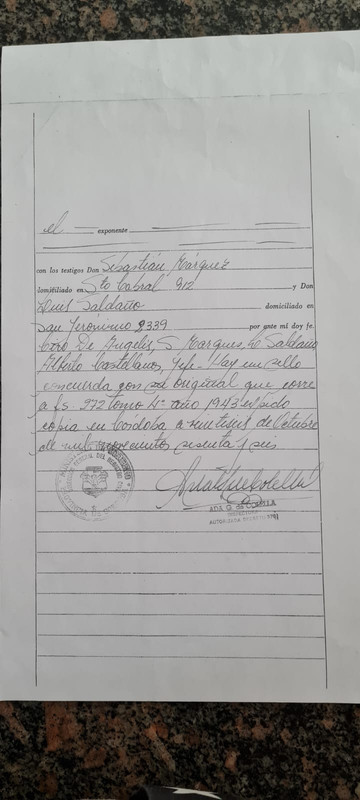 el exponente
con los testigos Don Sebastián Márquez
domiciliado en Sto Cabral 912 y Don
Luis Saldaño domiciliado en
San Jerónimo 2339 por ante mi doy fe.
De Angelis S Marques L Saldaño
Alberto Castellanos, Jefe. Hay un sello
concuerda con su original que corre
a fs. 372 tomo 4º año 1943 expido
copia en Córdoba a veintiseis de Octubre
de mil novecientos sesenta y seis
ADA G. de